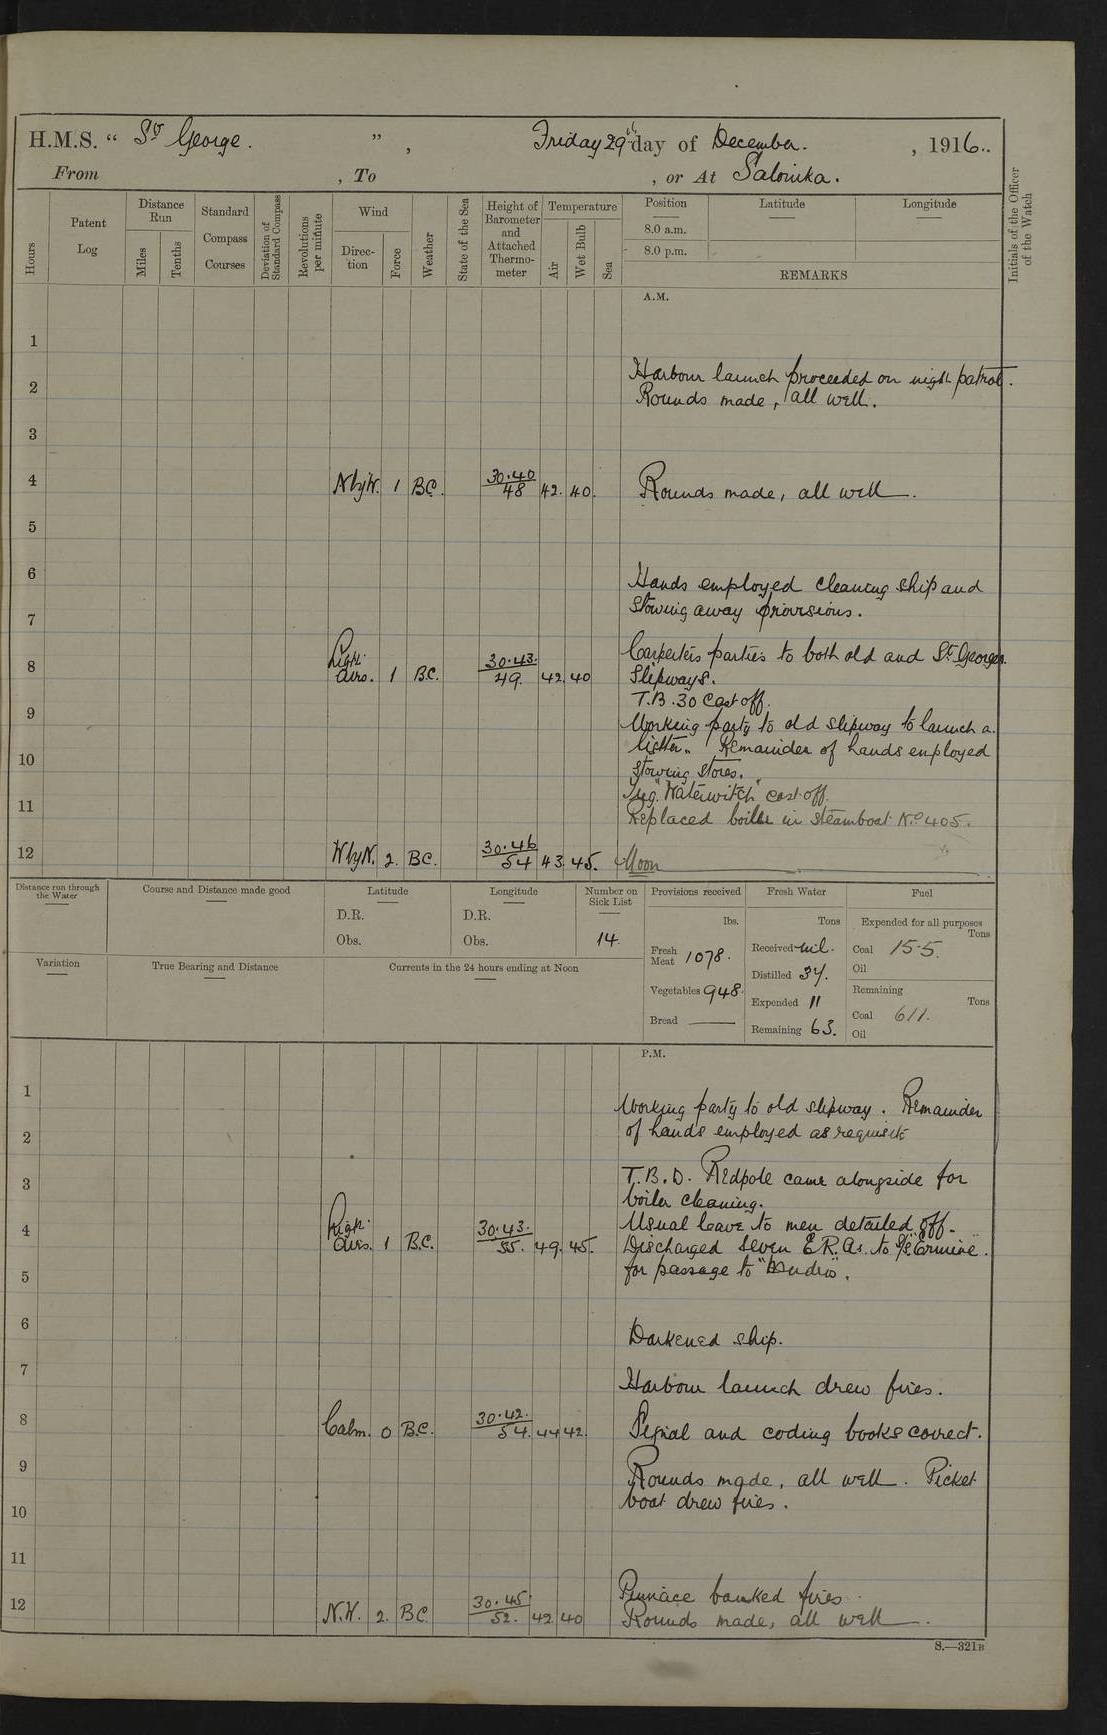 H.M.S. “ St George. ”, Friday 29th day of December. , 1916..
From , To , or At Salonika.
Hours
Patent Log
Distance Run
Miles
Tenths
Standard Compass Courses
Deviation of Standard Compass
Revolutions per minute
Wind
Direc-tion
Force
Weather
State of the Sea
Height of Barometer and Attached Thermo-meter
Temperature
Air
Wet Bulb
Sea
Position
Latitude
Longitude
8.0 a.m.
8.0 p.m.
REMARKS
Initials of the Officer of the Watch
A.M.
1
Harbour launch proceeded on night patrol.
2
Rounds made, all well.
3
4 N by W. 1 B.C. 30.40 / 48 42. 40. Rounds made, all well.
5
6
Hands employed cleaning ship and
stowing away provisions.
7
Carpenters parties to both old and St Georges
8 Light airs. 1 B.C. 30.43. / 49. 42. 40 Slipways.
T.B. 30 cast off.
9
Working party to old slipway to launch a
lighter. Remainder of hands employed
10
stowing stores.
Tug "Waterwitch" cast off.
11
Replaced boiler in steamboat No 405.
12 W by N. 2. B.C. 30.46 / 54 43. 45. Noon
Distance run through the Water
Course and Distance made good
Latitude
D.R.
Obs.
Longitude
D.R.
Obs.
Number on Sick List
14.
Provisions received
lbs.
Fresh Meat 1078.
Vegetables 948.
Bread
Fresh Water
Tons
Received nil.
Distilled 37.
Expended 11
Remaining 63.
Fuel
Expended for all purposes
Tons
Coal 15.5.
Oil
Remaining
Tons
Coal 611.
Oil
Variation
True Bearing and Distance
Currents in the 24 hours ending at Noon
P.M.
1
Working party to old slipway. Remainder
2
of hands employed as requisite
3
T.B.D. Redpole came alongside for
boiler cleaning.
Usual leave to men detailed off.
4 Light airs. 1 B.C. 30.43. / 55. 49. 45. Discharged seven E.R.As. to S/S "Ermine"
5
for passage to "Mudros".
6
Darkened ship.
7
Harbour launch drew fires.
8 Calm. 0 B.C. 30.42. / 54. 44 42. Signal and coding books correct.
9
Rounds made, all well. Picket
boat drew fires.
10
11
Pinnace banked fires.
12 N.W. 2. B.C. 30.45. / 52. 42 40 Rounds made, all well.
S.—321B